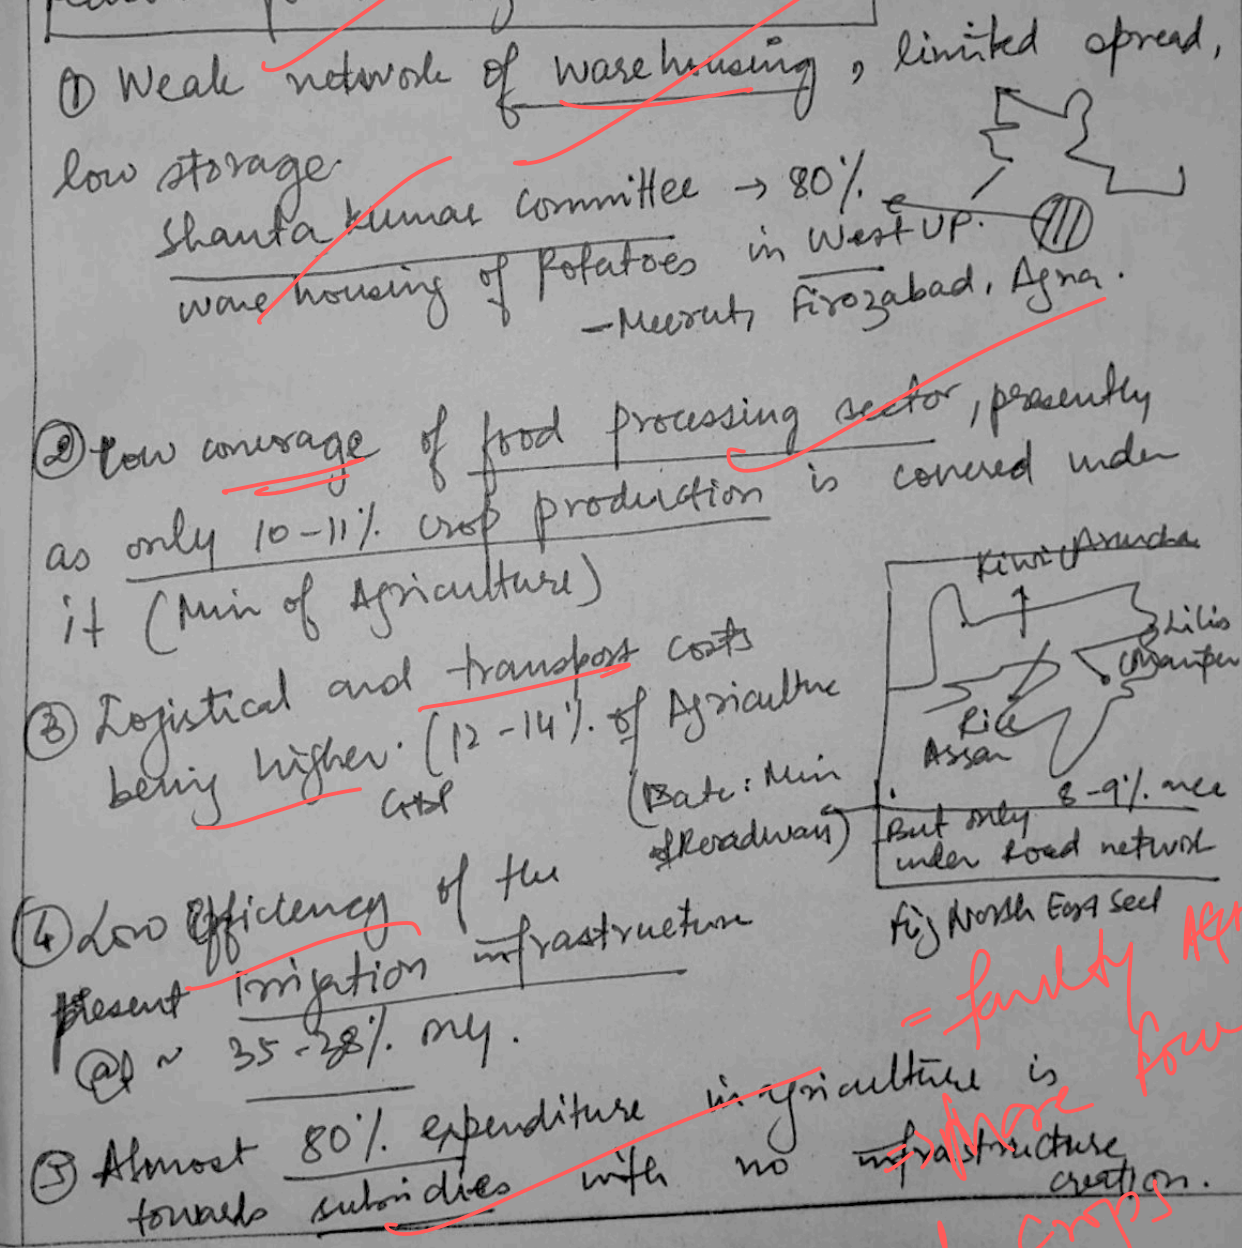 ① Weak network of warehousing, limited spread,
low storage.
Shanta Kumar Committee → 80%
warehousing of Potatoes in West UP.
- Meerut, Firozabad, Agra.
② Low coverage of food processing sector, presently
as only 10-11% crop production is covered under
it (Min of Agriculture)
③ Logistical and transport costs
being higher. (12-14% of Agriculture
GDP
(Data: Min
of Roadways)
Kiwi
Lilis
Manipur
Rice
Assam
But only 8-9% area
under Road network
Fig North East Sect
④ Low Efficiency of the
present irrigation infrastructure
@ ~ 35-38% only.
⑤ Almost 80% expenditure in agriculture is
towards subsidies with no infrastructure
creation.
= faulty
crops